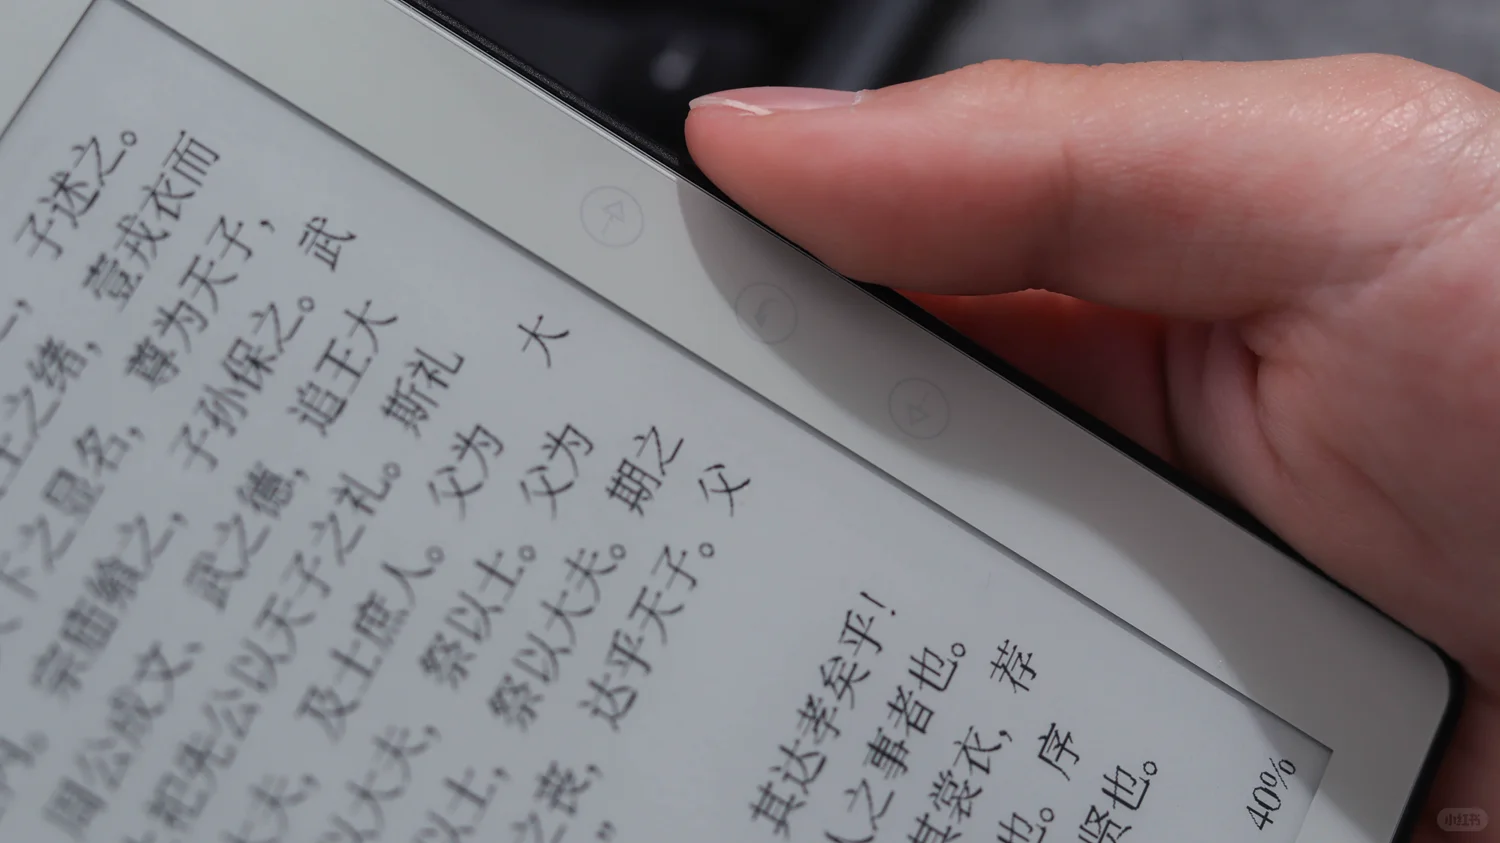 ，子述之。
王之绪，壹戎衣而
下之显名，尊为天子，
内。宗庙飨之，子孙保之。武
周公成文、武之德，追王大
祀先公以天子之礼。斯礼
大夫，及士庶人。父为大
以大夫，祭以士。父为
以士，祭以大夫。期之
之丧，达乎天子。父
”
其达孝矣乎！
人之事者也。
其裳衣，荐
也。序
贤也。
40%
小红书